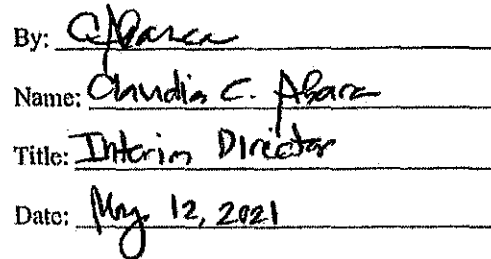 By:
Name: Claudia C.
Title: Interim Director
Date: 12, 2021